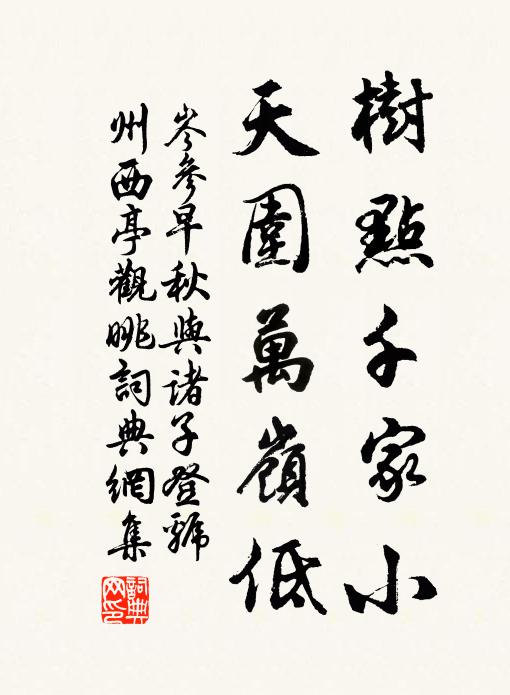 樹點千家小
天圍萬嶺低
岑參早秋與諸子登虢
州西亭觀眺詞典網集
詞典
网印